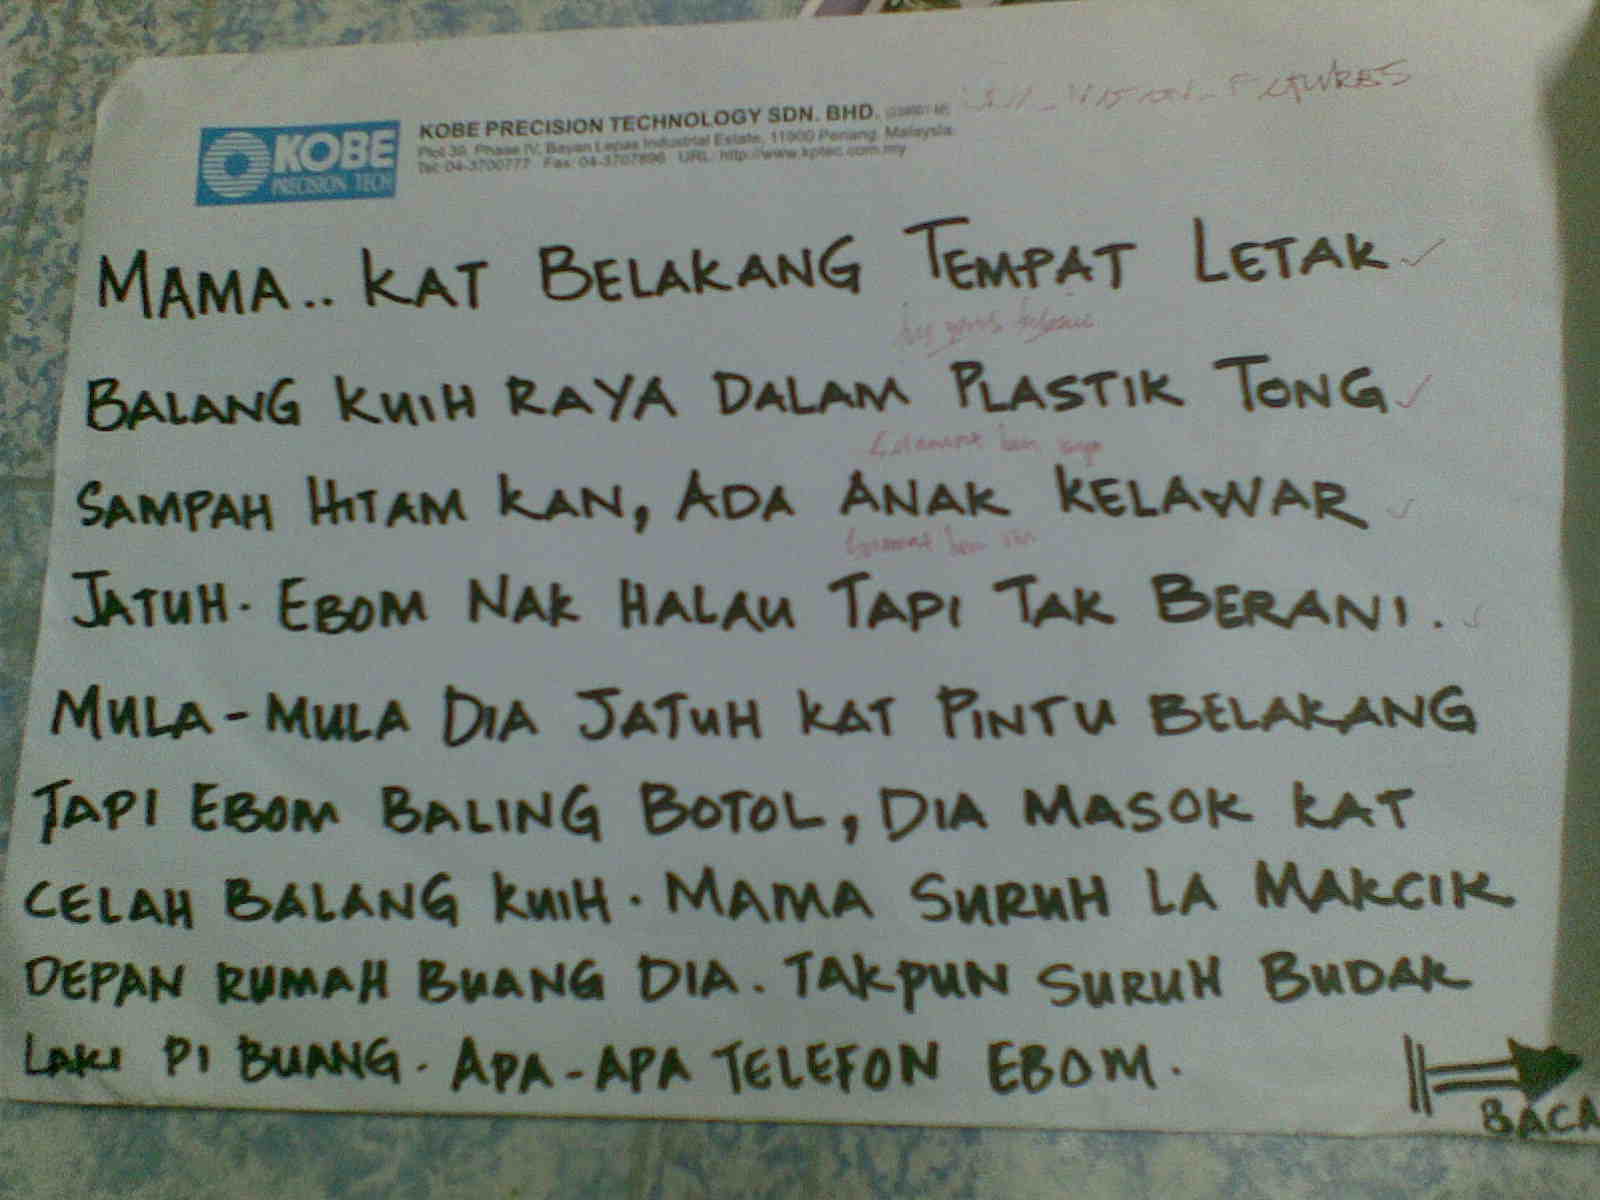 KOBE
PRECISION TECH
KOBE PRECISION TECHNOLOGY SDN. BHD.
Plot 39, Phase IV, Bayan Lepas Industrial Estate, 11900 Penang, Malaysia.
Tel: 04-3700777 Fax: 04-3707896 URL: http://www.kptec.com.my
MAMA.. KAT BELAKANG TEMPAT LETAK
BALANG KUIH RAYA DALAM PLASTIK TONG
SAMPAH HITAM KAN, ADA ANAK KELAWAR
JATUH. EBOM NAK HALAU TAPI TAK BERANI.
MULA-MULA DIA JATUH KAT PINTU BELAKANG
TAPI EBOM BALING BOTOL, DIA MASOK KAT
CELAH BALANG KUIH. MAMA SURUH LA MAKCIK
DEPAN RUMAH BUANG DIA. TAKPUN SURUH BUDAK
LAKI PI BUANG. APA-APA TELEFON EBOM.
BACA